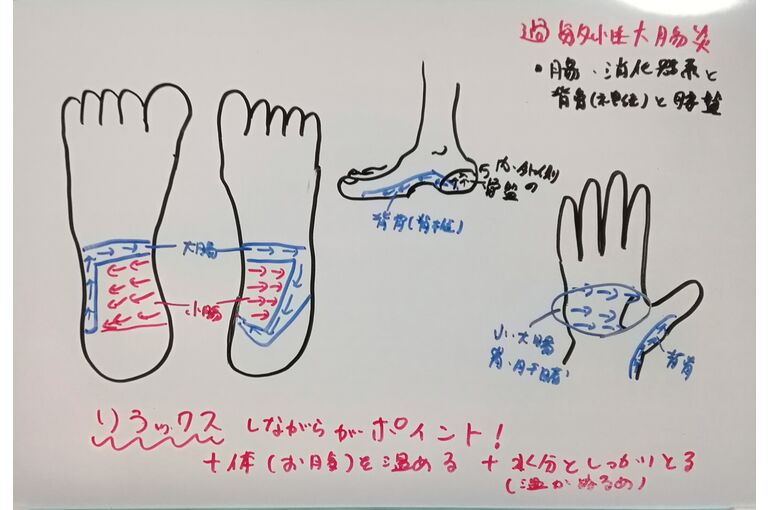 過敏性大腸炎
・腸・消化器系と
背骨(神経)と骨盤
内・外側
骨盤の
背骨(脊椎)
大腸
小腸
小・大腸
胃・肝臓
背骨
リラックス しながらがポイント!
+体(お腹)を温める +水分をしっかりとる
(温かぬるめ)